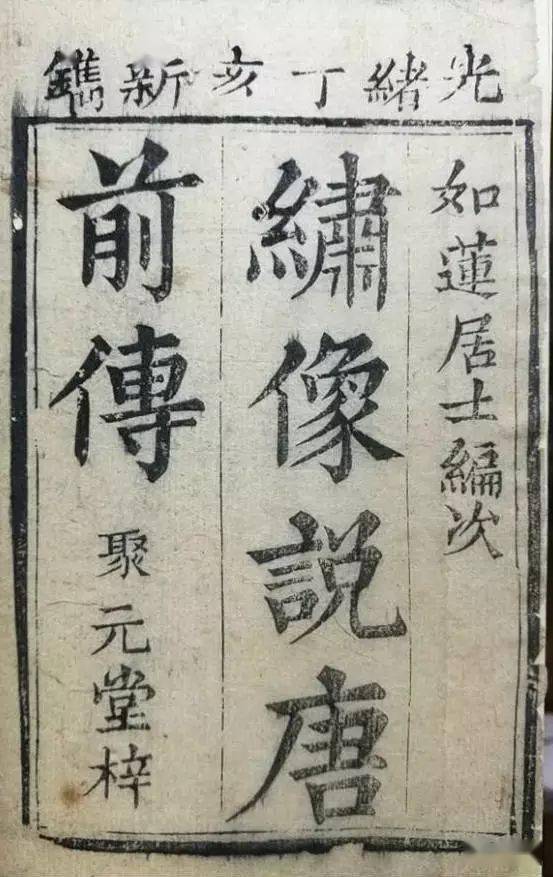 光緒丁亥新鐫
如蓮居士編次
繡像説唐
前傳
聚元堂梓